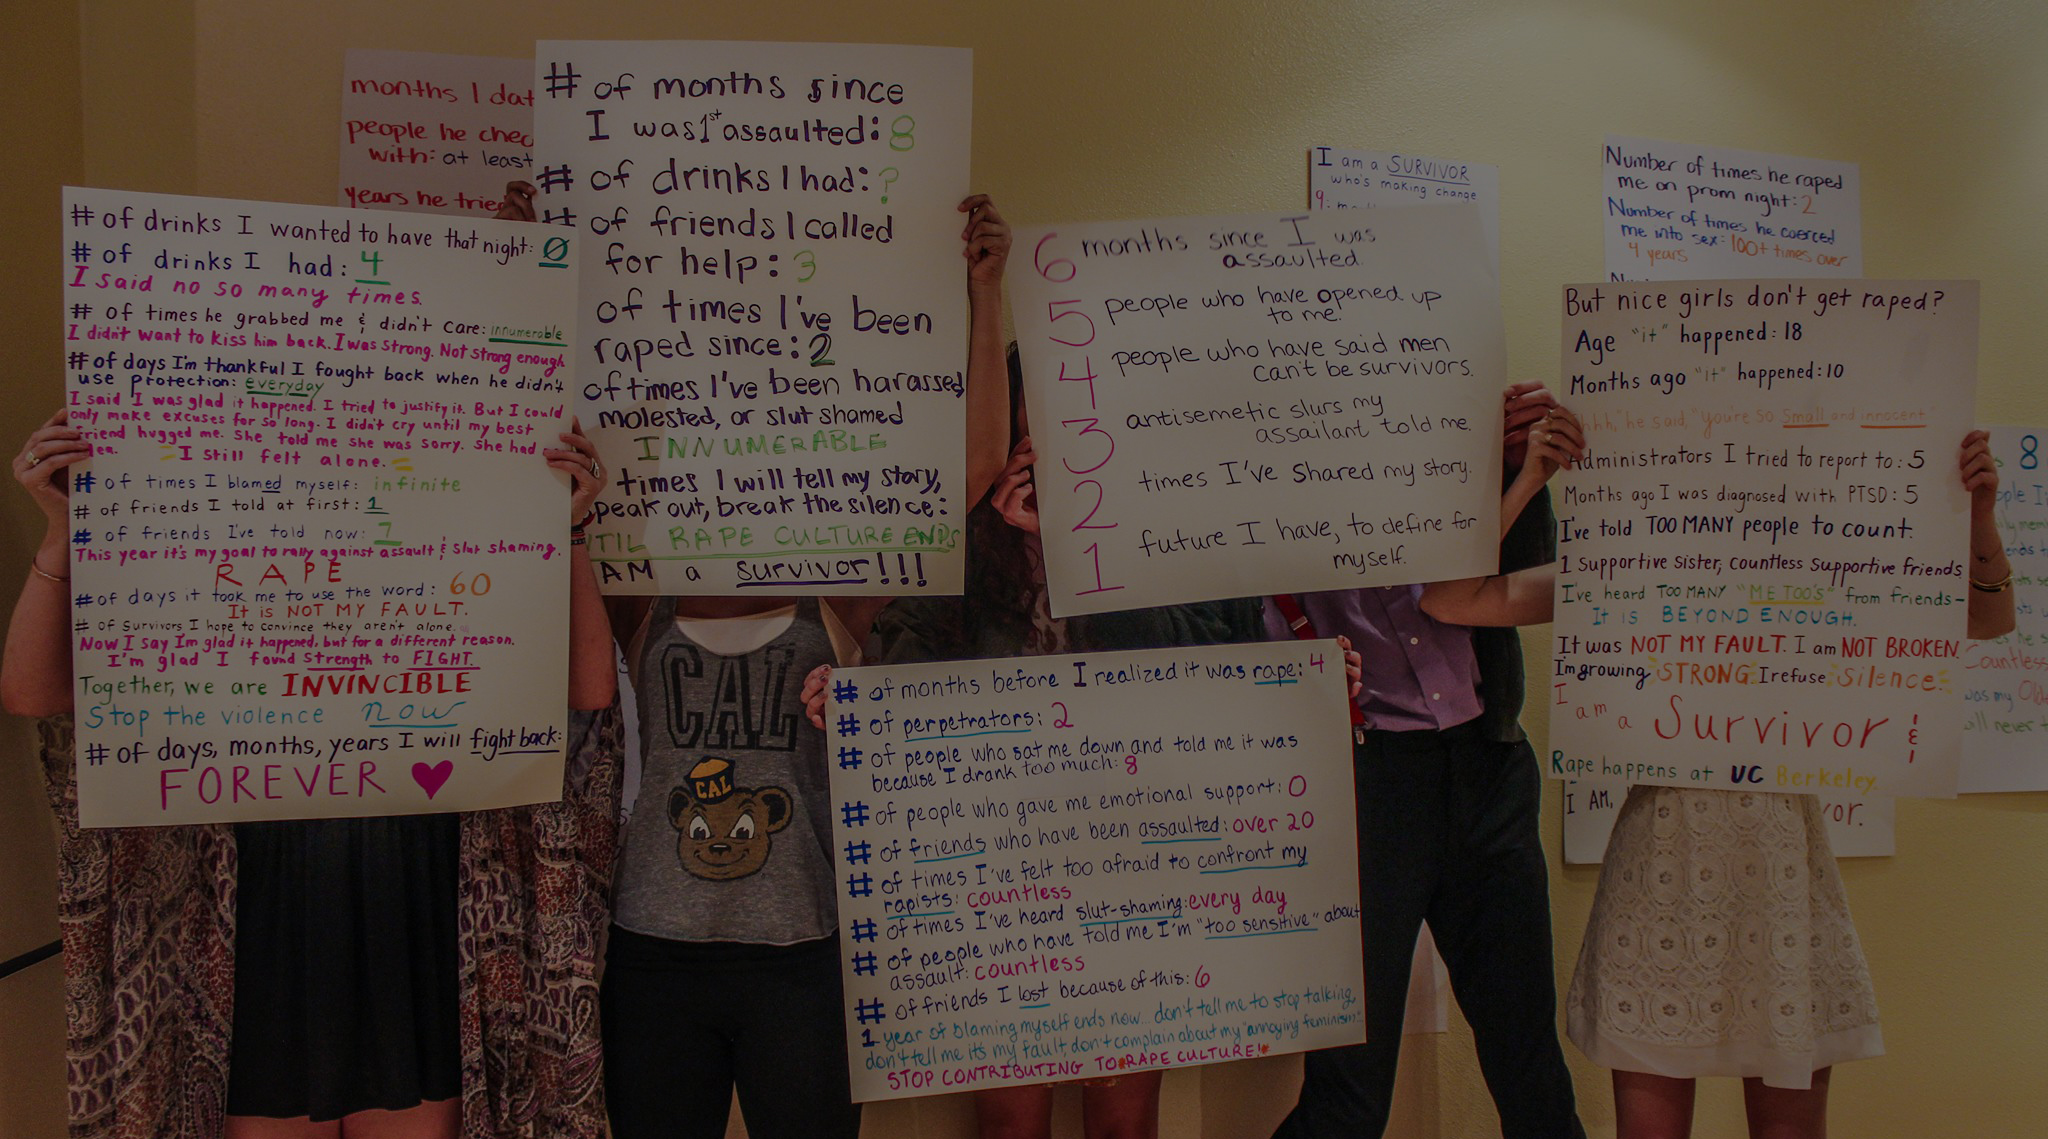 months I dat
people he chec
with: at least
years he tried
# of drinks I wanted to have that night: 0
# of drinks I had: 4
I said no so many times.
# of times he grabbed me & didn't care: innumerable
I didn't want to kiss him back. I was strong. Not strong enough
# of days I'm thankful I fought back when he didn't
use protection: everyday
I said I was glad it happened. I tried to justify it. But I could
only make excuses for so long. I didn't cry until my best
friend hugged me. She told me she was sorry. She had
dea. I still felt alone.
# of times I blamed myself: infinite
# of friends I told at first: 1
# of friends I've told now: 7
This year it's my goal to rally against assault & slut shaming.
RAPE
# of days it took me to use the word: 60
It is NOT MY FAULT.
# of survivors I hope to convince they aren't alone.
Now I say I'm glad it happened, but for a different reason.
I'm glad I found strength to FIGHT.
Together, we are INVINCIBLE
Stop the violence now
# of days, months, years I will fight back:
FOREVER ♥
# of months since
I was 1st assaulted: 8
# of drinks I had: ?
# of friends I called
for help: 3
of times I've been
raped since: 2
of times I've been harassed,
molested, or slut shamed
INNUMERABLE
times I will tell my story,
speak out, break the silence:
TIL RAPE CULTURE ENDS
AM a survivor!!!
CAL
CAL
6 months since I was
assaulted.
5 people who have opened up
to me.
4 people who have said men
can't be survivors.
3 antisemetic slurs my
assailant told me.
2 times I've shared my story.
1 future I have, to define for
myself.
# of months before I realized it was rape: 4
# of perpetrators: 2
# of people who sat me down and told me it was
because I drank too much: 8
# of people who gave me emotional support: 0
# of friends who have been assaulted: over 20
# of times I've felt too afraid to confront my
rapists: countless
# of times I've heard slut-shaming: every day
# of people who have told me I'm "too sensitive" about
assault: countless
# of friends I lost because of this: 6
1 year of blaming myself ends now... don't tell me to stop talking,
don't tell me it's my fault, don't complain about my "annoying feminism".
STOP CONTRIBUTING TO RAPE CULTURE!
I am a SURVIVOR
who's making change
9:
Number of times he raped
me on prom night: 2
Number of times he coerced
me into sex: 100+ times over
4 years
But nice girls don't get raped?
Age "it" happened: 18
Months ago "it" happened: 10
hhh," he said, "you're so small and innocent"
Administrators I tried to report to: 5
Months ago I was diagnosed with PTSD: 5
I've told TOO MANY people to count.
1 supportive sister, countless supportive friends
I've heard TOO MANY "ME TOO'S" from friends-
It is BEYOND ENOUGH.
It was NOT MY FAULT. I am NOT BROKEN.
I'm growing STRONG. I refuse silence.
I am a Survivor !&!
Rape happens at UC Berkeley.
I AM, vor.
8
ople I
ly mem
ends t
he s
Countless
was my Old
ill never t